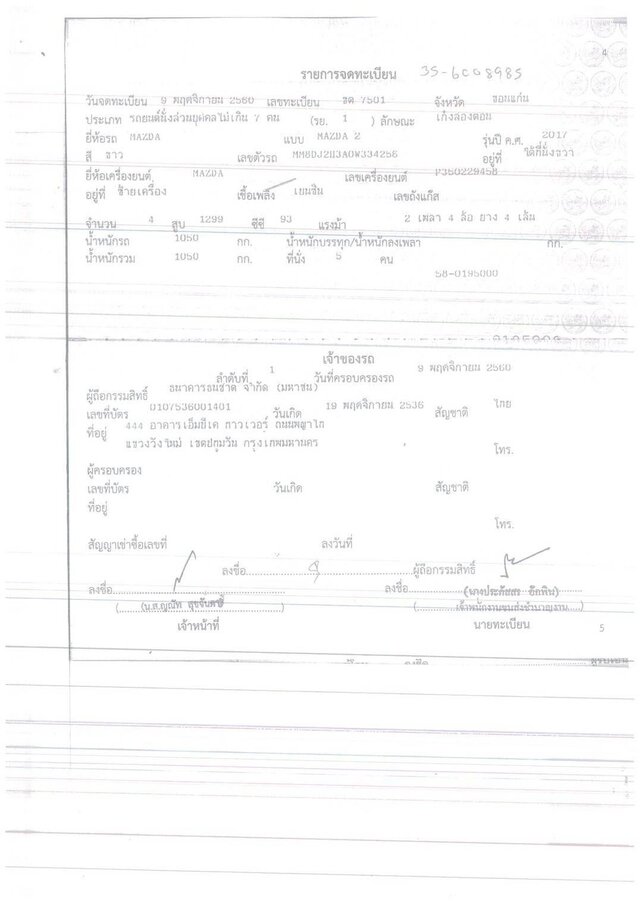 4
รายการจดทะเบียน 35-6008985
วันจดทะเบียน 9 พฤศจิกายน 2560 เลขทะเบียน ขต 7501 จังหวัด ขอนแก่น
ประเภท รถยนต์นั่งส่วนบุคคลไม่เกิน 7 คน (รย. 1 ) ลักษณะ เก๋งสองตอน
ยี่ห้อรถ MAZDA แบบ MAZDA 2 รุ่นปี ค.ศ. 2017
สี ขาว เลขตัวรถ อยู่ที่ ใต้ที่นั่งขวา
ยี่ห้อเครื่องยนต์ MAZDA เลขเครื่องยนต์
อยู่ที่ ซ้ายเครื่อง เชื้อเพลิง เบนซิน เลขถังแก๊ส
จำนวน 4 สูบ 1299 ซีซี 93 แรงม้า 2 เพลา 4 ล้อ ยาง 4 เส้น
น้ำหนักรถ 1050 กก. น้ำหนักบรรทุก/น้ำหนักลงเพลา กก.
น้ำหนักรวม 1050 กก. ที่นั่ง 5 คน
58-0195000
เจ้าของรถ
ลำดับที่ 1 วันที่ครอบครองรถ 9 พฤศจิกายน 2560
ผู้ถือกรรมสิทธิ์ ธนาคารธนชาต จำกัด (มหาชน)
เลขที่บัตร 0107536001401 วันเกิด 19 พฤศจิกายน 2536 สัญชาติ ไทย
ที่อยู่ 444 อาคารเอ็มบีเค ทาวเวอร์ ถนนพญาไท
แขวงวังใหม่ เขตปทุมวัน กรุงเทพมหานคร โทร.
ผู้ครอบครอง
เลขที่บัตร วันเกิด สัญชาติ
ที่อยู่
โทร.
สัญญาเช่าซื้อเลขที่ ลงวันที่
ลงชื่อ ผู้ถือกรรมสิทธิ์
ลงชื่อ ลงชื่อ
(นางประภัสสร
เจ้าหน้าที่ นายทะเบียน
5